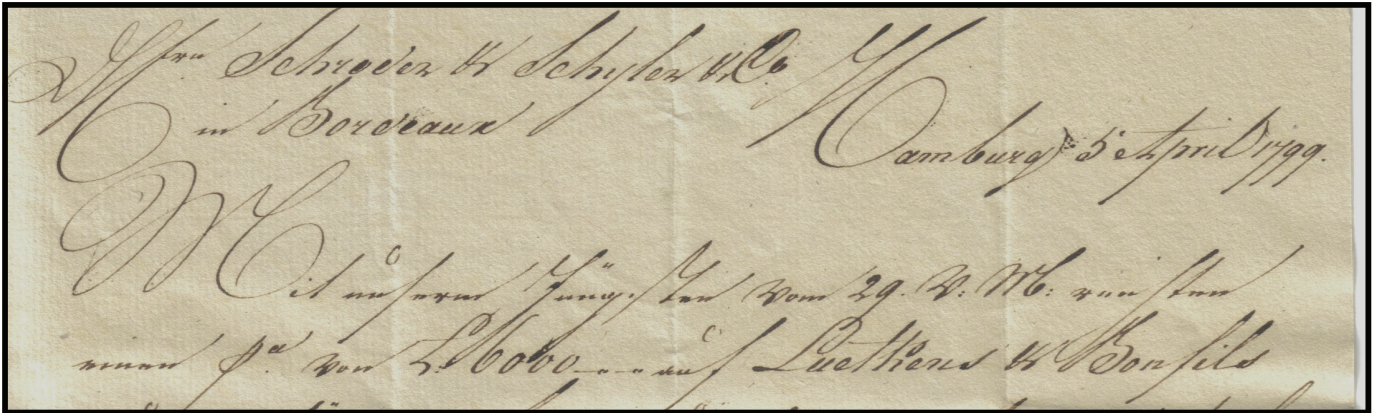 Hrn Schroder & Schyler & Co
in Bordeaux
Hamburg 5 April 1799.
Mit unserm Jüngsten vom 29. v. M: reisten
einen pa. von L. 6000 --- auf Luetkens & Bonfils